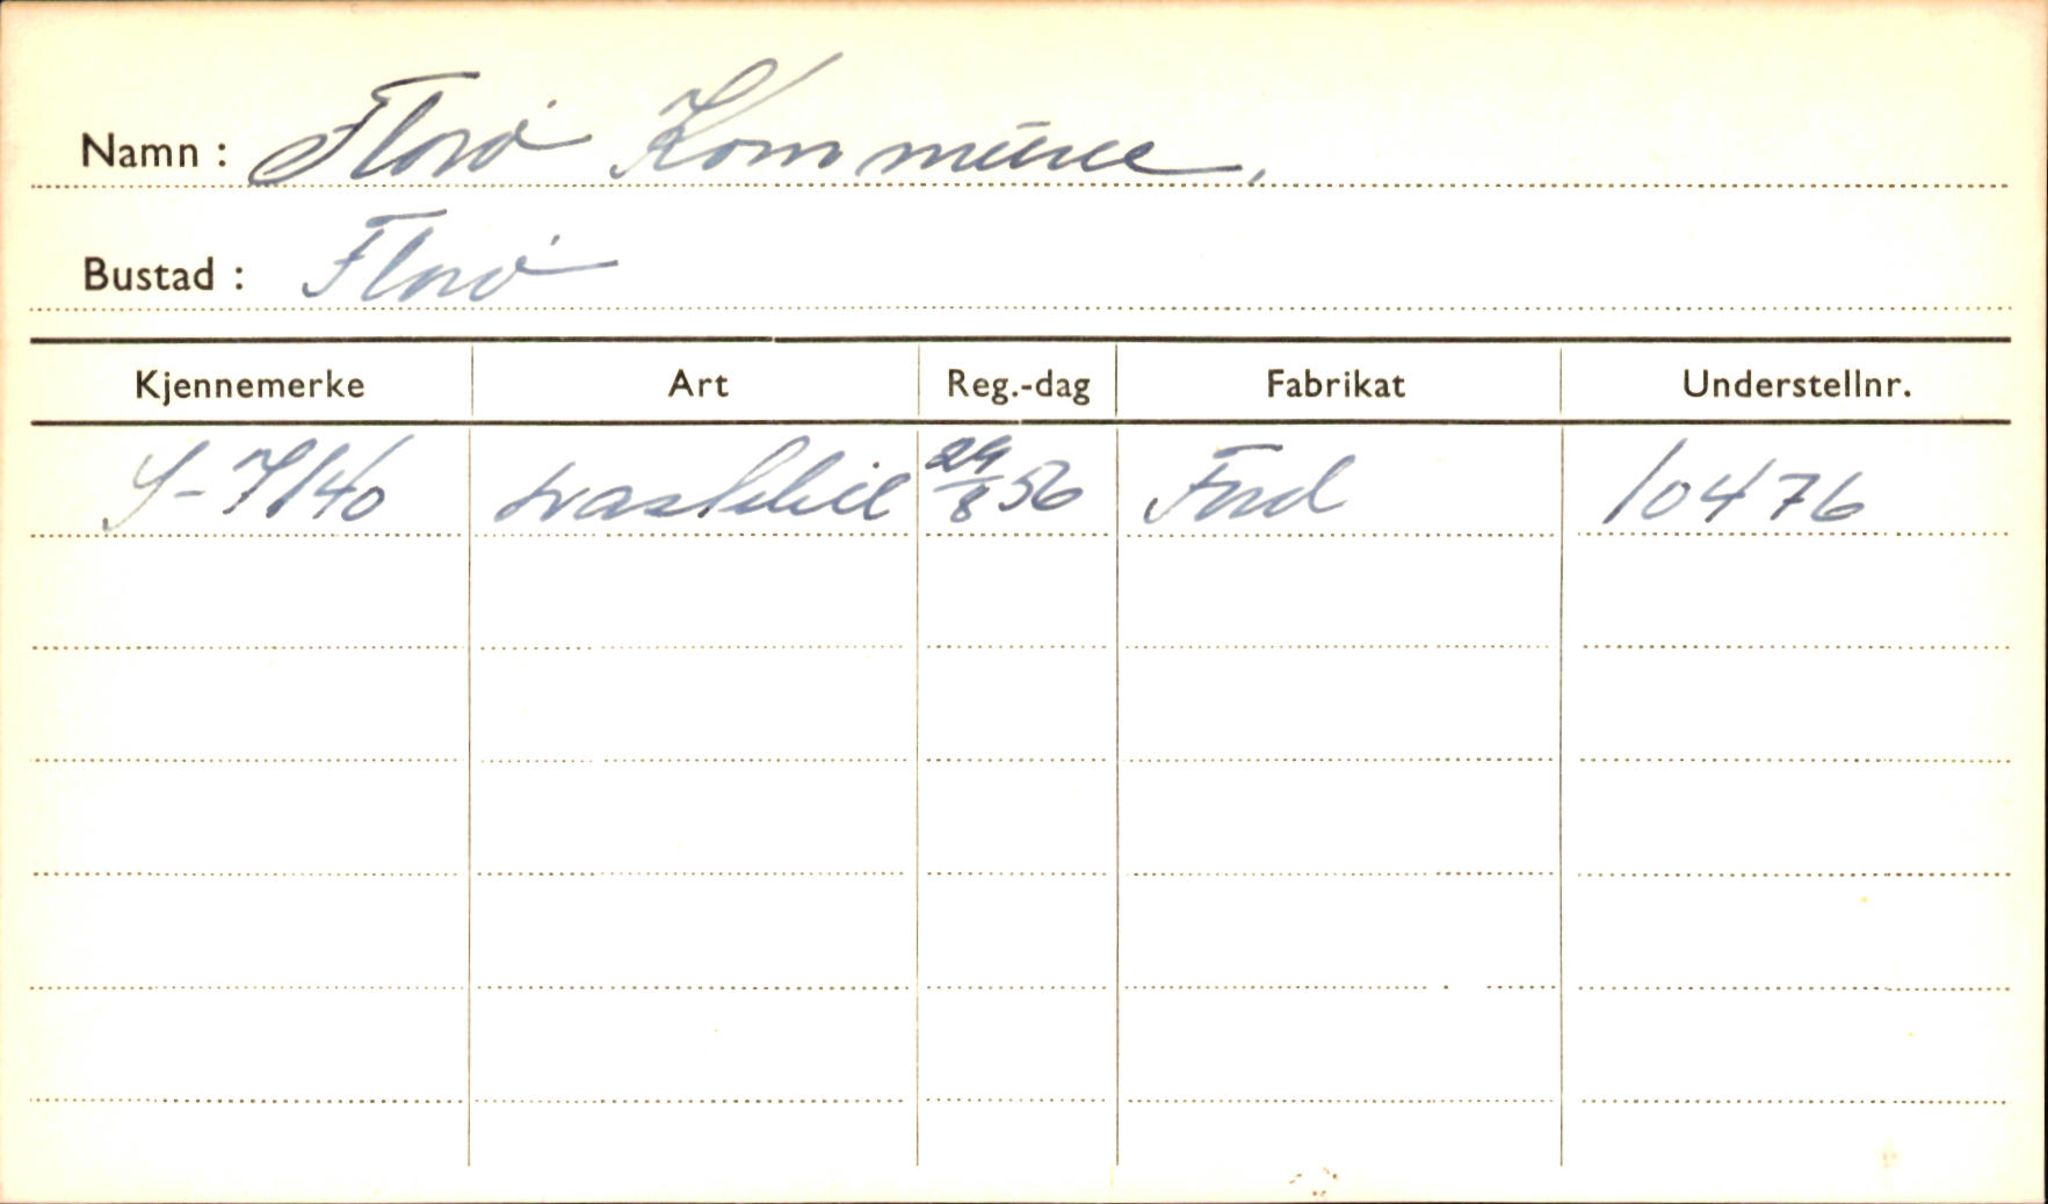 Namn : Florø Kommune.
Bustad : Florø
Kjennemerke Art Reg.-dag Fabrikat Understellnr.
S-7140 vaskebil 29/8 56 Ford 10476